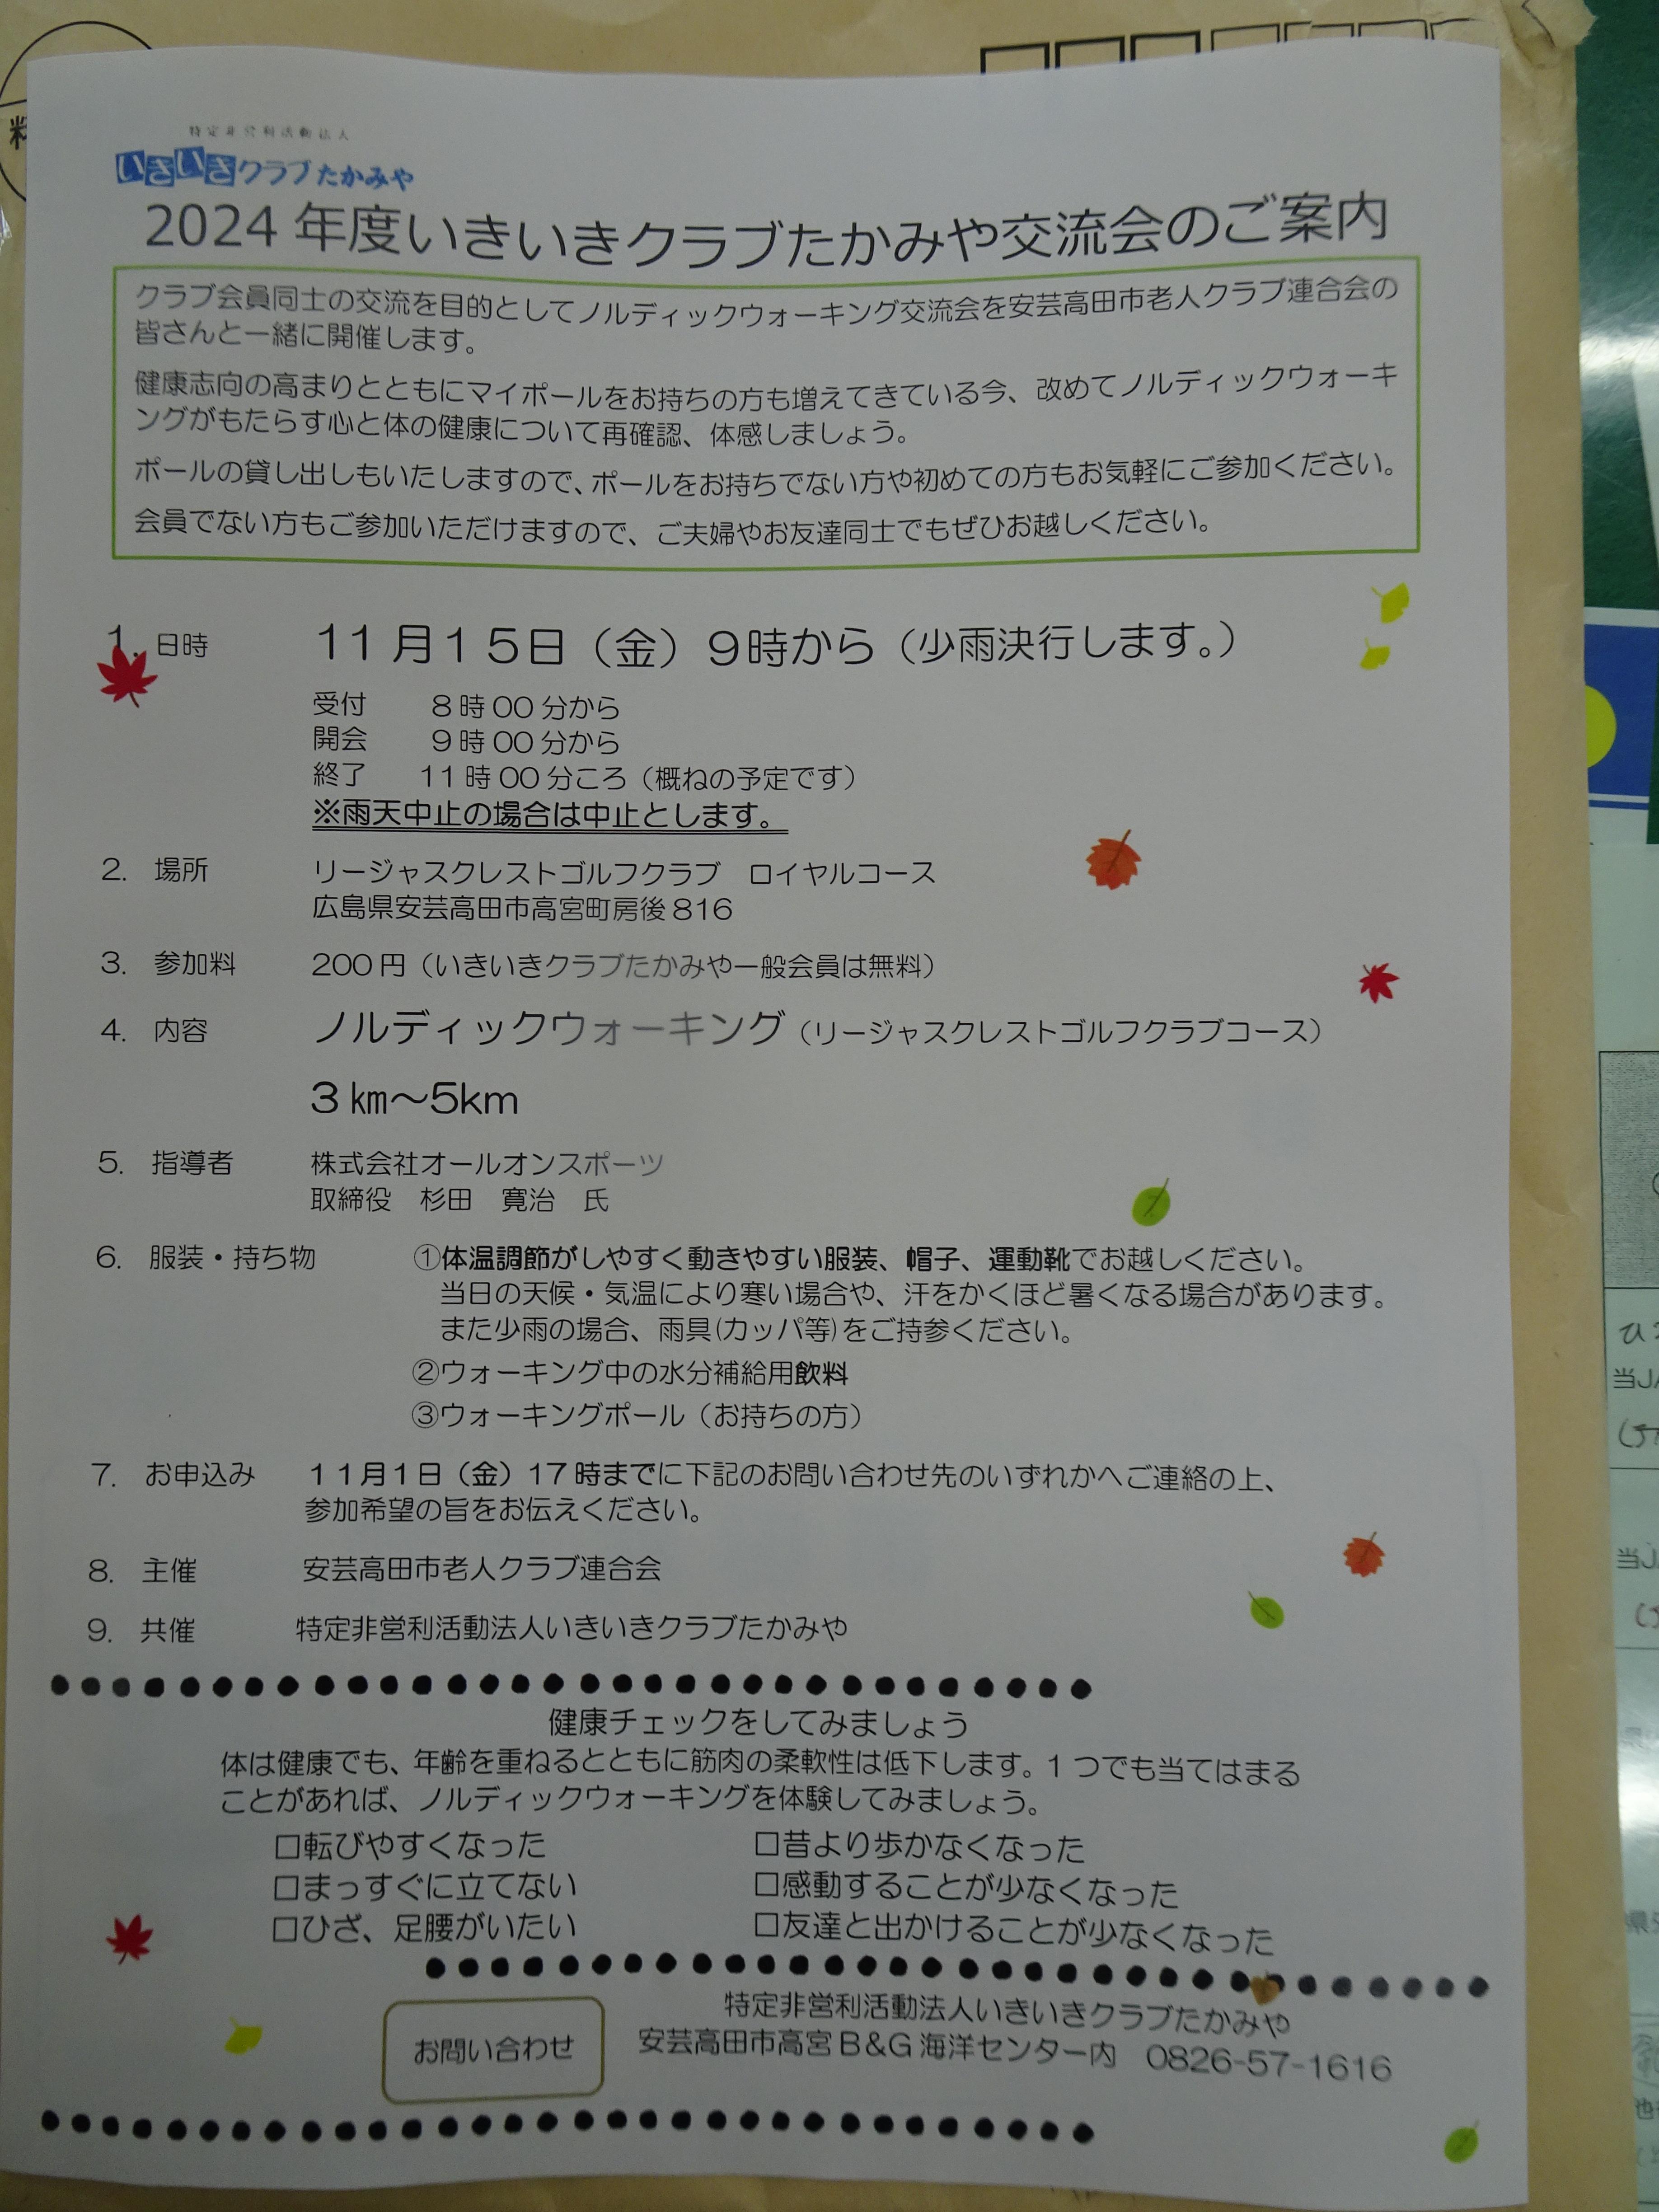 特定非営利活動法人
いきいきクラブたかみや
2024年度いきいきクラブたかみや交流会のご案内
クラブ会員同士の交流を目的としてノルディックウォーキング交流会を安芸高田市老人クラブ連合会の
皆さんと一緒に開催します。
健康志向の高まりとともにマイポールをお持ちの方も増えてきている今、改めてノルディックウォーキ
ングがもたらす心と体の健康について再確認、体感しましょう。
ポールの貸し出しもいたしますので、ポールをお持ちでない方や初めての方もお気軽にご参加ください。
会員でない方もご参加いただけますので、ご夫婦やお友達同士でもぜひお越しください。
1. 日時 11月15日（金）9時から（少雨決行します。）
受付 8時00分から
開会 9時00分から
終了 11時00分ころ（概ねの予定です）
※雨天中止の場合は中止とします。
2. 場所 リージャスクレストゴルフクラブ ロイヤルコース
広島県安芸高田市高宮町房後816
3. 参加料 200円（いきいきクラブたかみや一般会員は無料）
4. 内容 ノルディックウォーキング（リージャスクレストゴルフクラブコース）
3㎞～5km
5. 指導者 株式会社オールオンスポーツ
取締役 杉田 寛治 氏
6. 服装・持ち物 ①体温調節がしやすく動きやすい服装、帽子、運動靴でお越しください。
当日の天候・気温により寒い場合や、汗をかくほど暑くなる場合があります。
また少雨の場合、雨具(カッパ等)をご持参ください。
②ウォーキング中の水分補給用飲料
③ウォーキングポール（お持ちの方）
7. お申込み 11月1日（金）17時までに下記のお問い合わせ先のいずれかへご連絡の上、
参加希望の旨をお伝えください。
8. 主催 安芸高田市老人クラブ連合会
9. 共催 特定非営利活動法人いきいきクラブたかみや
健康チェックをしてみましょう
体は健康でも、年齢を重ねるとともに筋肉の柔軟性は低下します。1つでも当てはまる
ことがあれば、ノルディックウォーキングを体験してみましょう。
□転びやすくなった □昔より歩かなくなった
□まっすぐに立てない □感動することが少なくなった
□ひざ、足腰がいたい □友達と出かけることが少なくなった
特定非営利活動法人いきいきクラブたかみや
お問い合わせ 安芸高田市高宮B&G海洋センター内 0826-57-1616